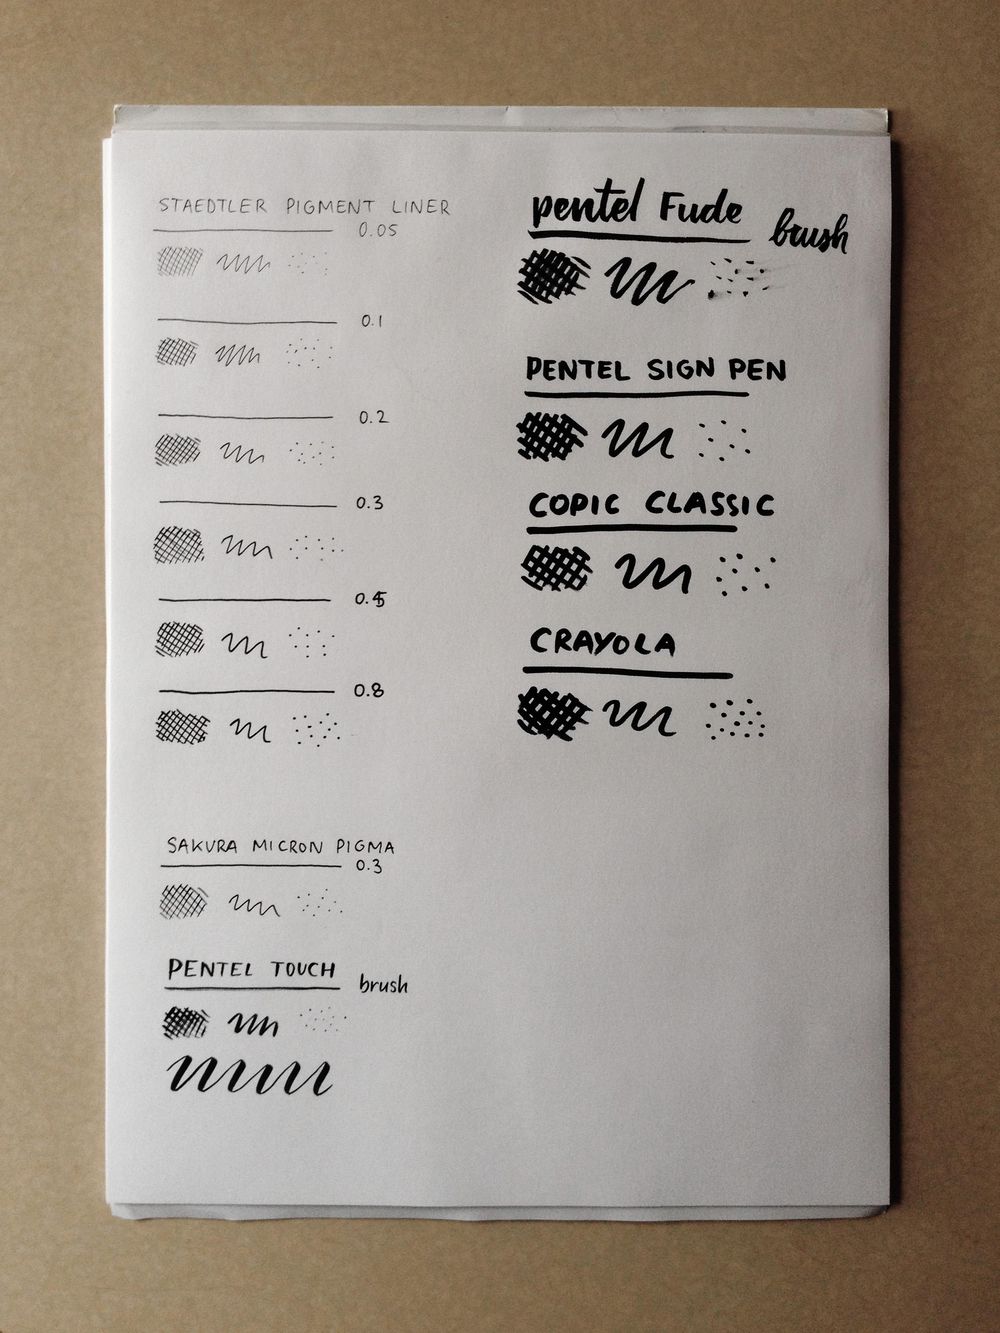 STAEDTLER PIGMENT LINER
0.05
0.1
0.2
0.3
0.5
0.8
SAKURA MICRON PIGMA
0.3
PENTEL TOUCH
brush
pentel Fude
brush
PENTEL SIGN PEN
COPIC CLASSIC
CRAYOLA